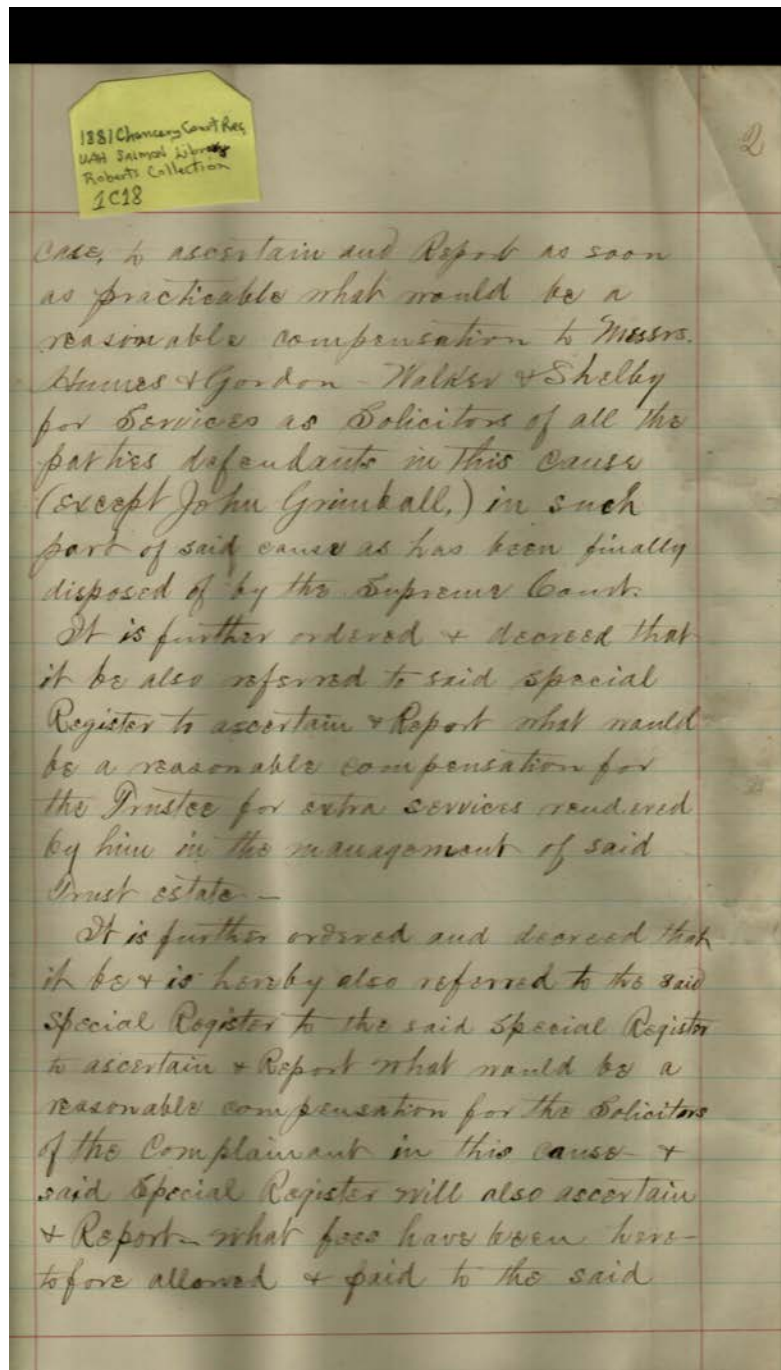 1881 Chancery Court Rec
UAH Salmon Library
Roberts Collection
1C18
2
case, to ascertain and Report as soon
as practicable what would be a
reasonable compensation to Messrs.
Humes & Gordon - Walker & Shelby
for Services as Solicitors of all the
parties defendants in this cause
(except John Grimball,) in such
part of said cause as has been finally
disposed of by the Supreme Court.
It is further ordered & decreed that
it be also referred to said special
Register to ascertain & Report what would
be a reasonable compensation for
the Trustee for extra services rendered
by him in the management of said
Trust estate -
It is further ordered and decreed that
it be & is hereby also referred to the said
Special Register to the said Special Register
to ascertain & Report what would be a
reasonable compensation for the Solicitors
of the Complainant in this cause - &
said Special Register will also ascertain
& Report - what fees have been here-
tofore allowed & paid to the said